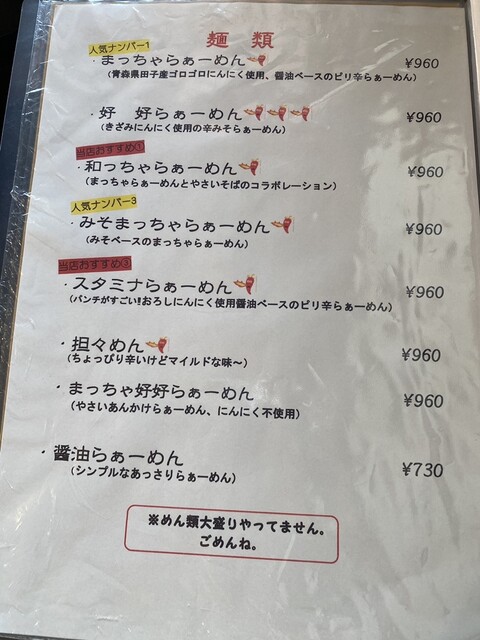 麺 類
人気ナンバー1
・まっちゃらぁーめん ¥960
(青森県田子産ゴロゴロにんにく使用、醤油ベースのピリ辛らぁーめん)
・好 好らぁーめん ¥960
(きざみにんにく使用の辛みそらぁーめん)
当店おすすめ①
・和っちゃらぁーめん ¥960
(まっちゃらぁーめんとやさいそばのコラボレーション)
人気ナンバー3
・みそまっちゃらぁーめん ¥960
(みそベースのまっちゃらぁーめん)
当店おすすめ③
・スタミナらぁーめん ¥960
(パンチがすごい!!おろしにんにく使用醤油ベースのピリ辛らぁーめん)
・担々めん ¥960
(ちょっぴり辛いけどマイルドな味〜)
・まっちゃ好好らぁーめん ¥960
(やさいあんかけらぁーめん、にんにく不使用)
・醤油らぁーめん ¥730
(シンプルなあっさりらぁーめん)
※めん類大盛りやってません。
ごめんね。